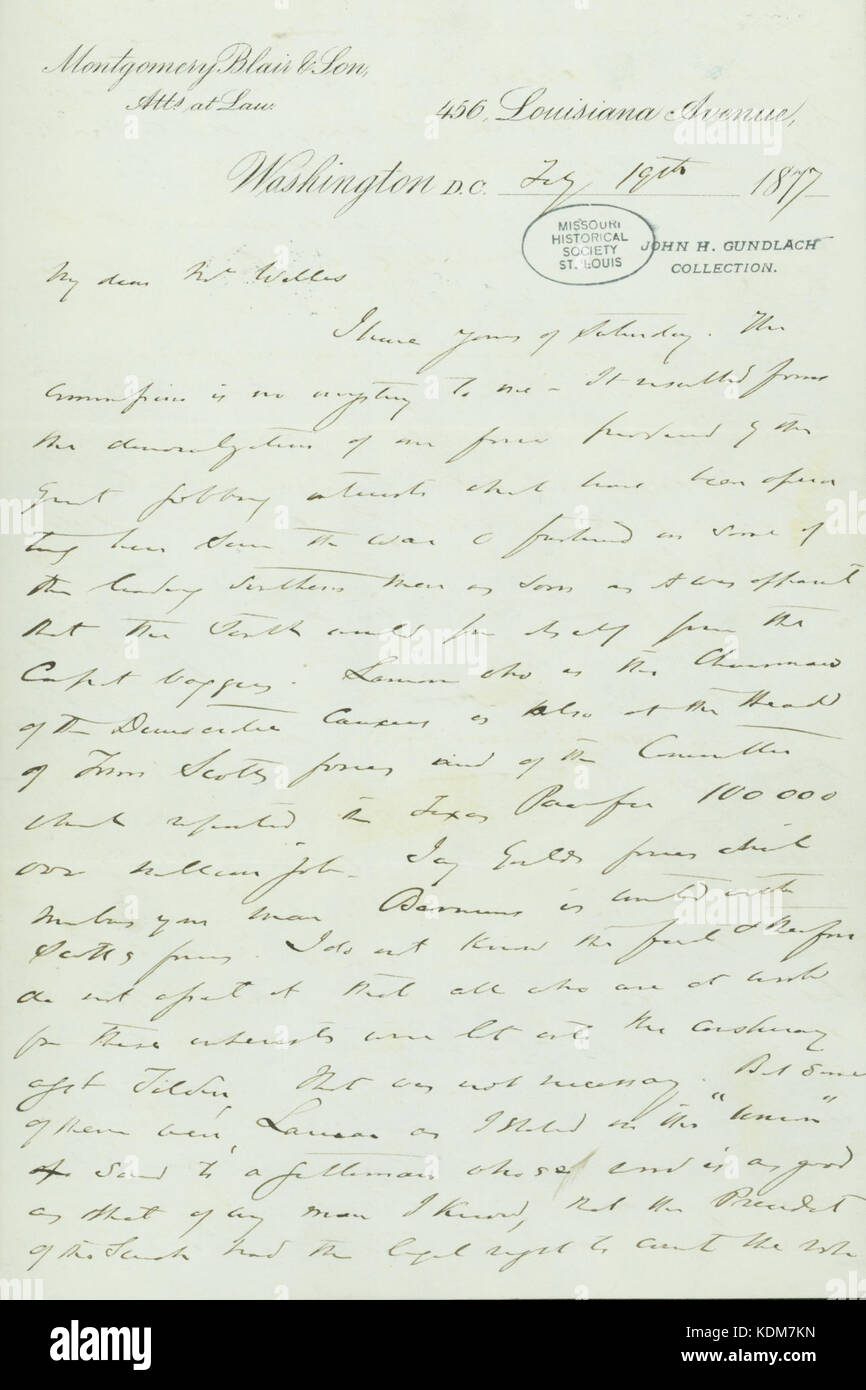 Montgomery Blair & Son,
Atts, at Law.
456, Louisiana Avenue,
Washington D.C. Feby 19th 1877
MISSOURI
HISTORICAL
SOCIETY
ST. LOUIS
JOHN H. GUNDLACH
COLLECTION.
My dear Mr Welles
I have yours of Saturday. The
is no mystery to me - It resulted from
the demoralization of our force produced by the
Great jobbing interests which have been opera
ting here since the war & fastened on some of
the leading Southern men as soon as it was apparent
that the South would free itself from the
Carpet baggers. Lamar who is the Chairman
of the Democratic Caucus is also at the Head
of Tom Scotts forces and of the Committee
which reported the Texas Pacific 100 000
000 million job - Jay Goulds forces which
your man Barnum is united with
Scotts forces. I do not know the fact & therefore
do not assert it that all who are at work
for these interests were let into the conspiracy
agst Tilden, That was not necessary. But some
of them were, Lamar as I stated in the "Union"
said to a gentleman whose word is as good
as that of any man I know, that the President
of the Senate had the legal right to count the vote
alamy
Image ID: KDM7KN
www.alamy.com